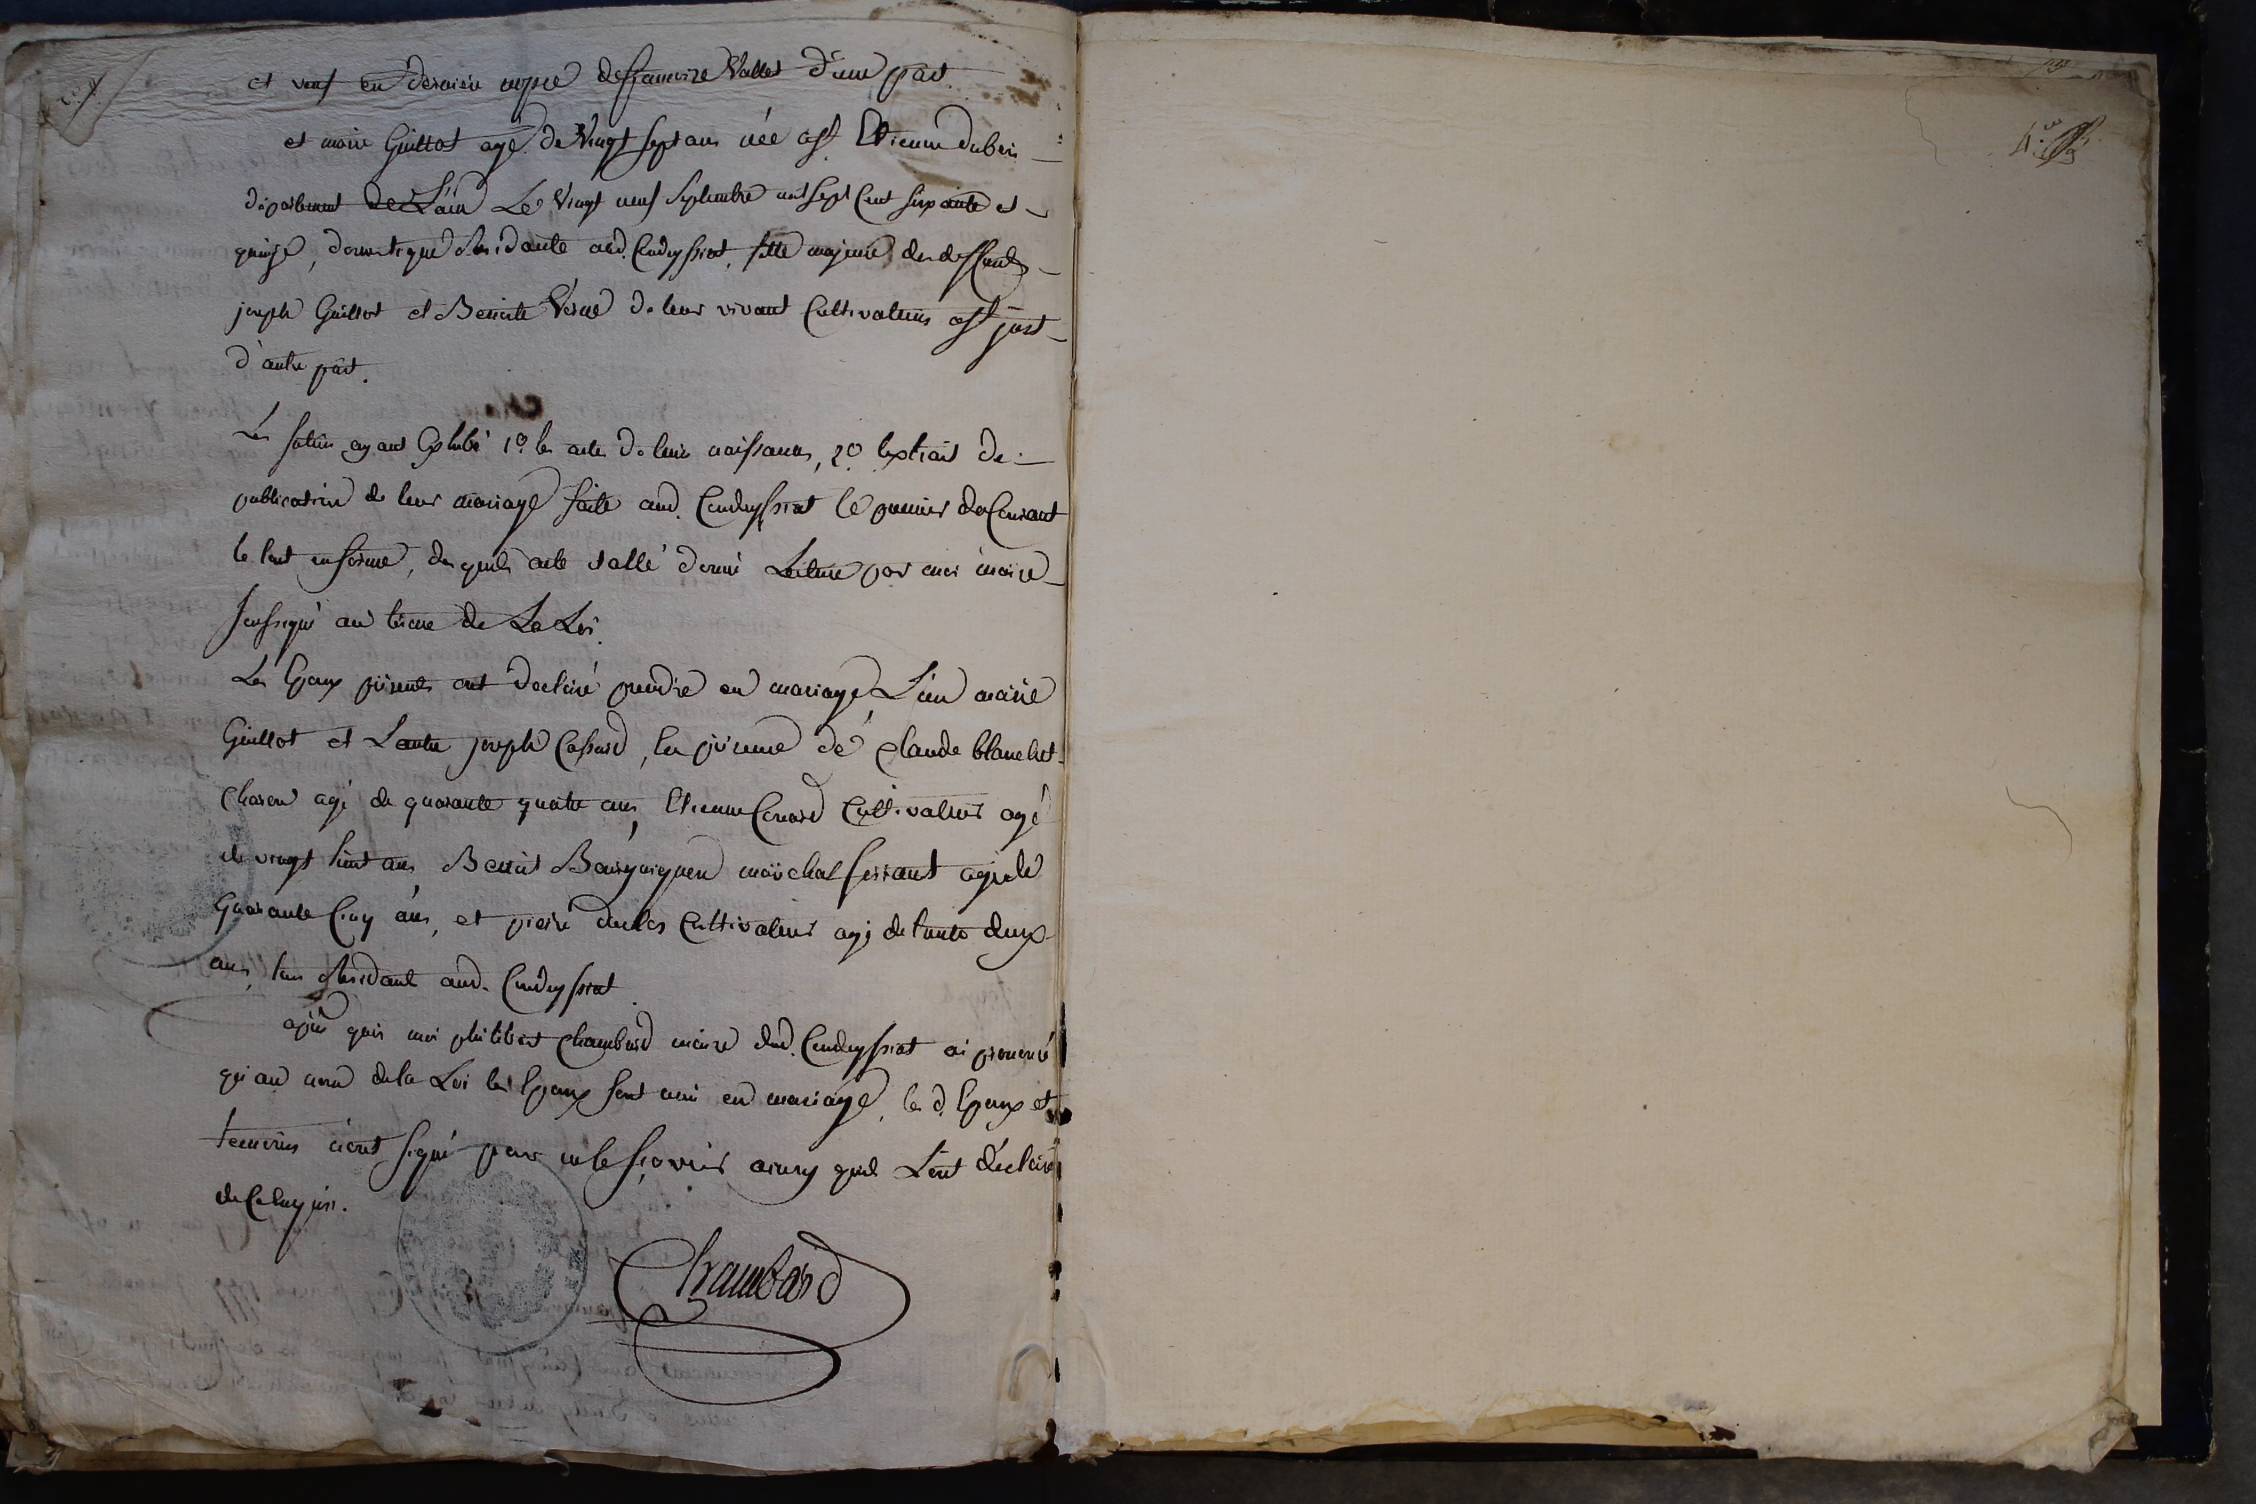 et veuf en dernier nopce de francoise Vallet d'une part
et marie Guillot agé de Vingt Sept ans née a St. Etienne du bois
département de L'ain Le Vingt neuf Septembre mil Sept Cent Soixante et
quinze, domestique Residante aud. Condeyssiat, fille majeure des deffunts
joseph Guillot et Benoite Verne de leur vivant Cultivateurs a St just
d'autre part.
Les futurs ayant Exhibé 1º les actes de leur naissances, 2º lextrait de
publication de leur mariage faite aud. Condeyssiat le premier du Courant
le tout en forme, des quels acte il a été donné Lecture par moi maire
jusqu'au terme de La Loi.
Les Epoux présents ont declaré prendre en mariage, L'un marie
Guillot et L'autre joseph Cassard, en présence de Claude blanchet
Charon agé de quarante quatre ans, Etienne Cerard Cultivateur agé
de vingt huit ans Benoit Bourguignon maréchal ferrant agé de
Quarante Cinq ans, et pierre Cultivateur agé de trente deux
ans, tous Residant aud. Condeyssiat
après quoi moi philibert Chambard maire dud. Condeyssiat ai prononcé
qu'au nom de la Loi les Epoux sont unis en mariage, les d. Epoux et
temoins n'ont signé pour ne le sçavoir ainsy quils L'ont déclaré
de Ce enquis.
Chambard